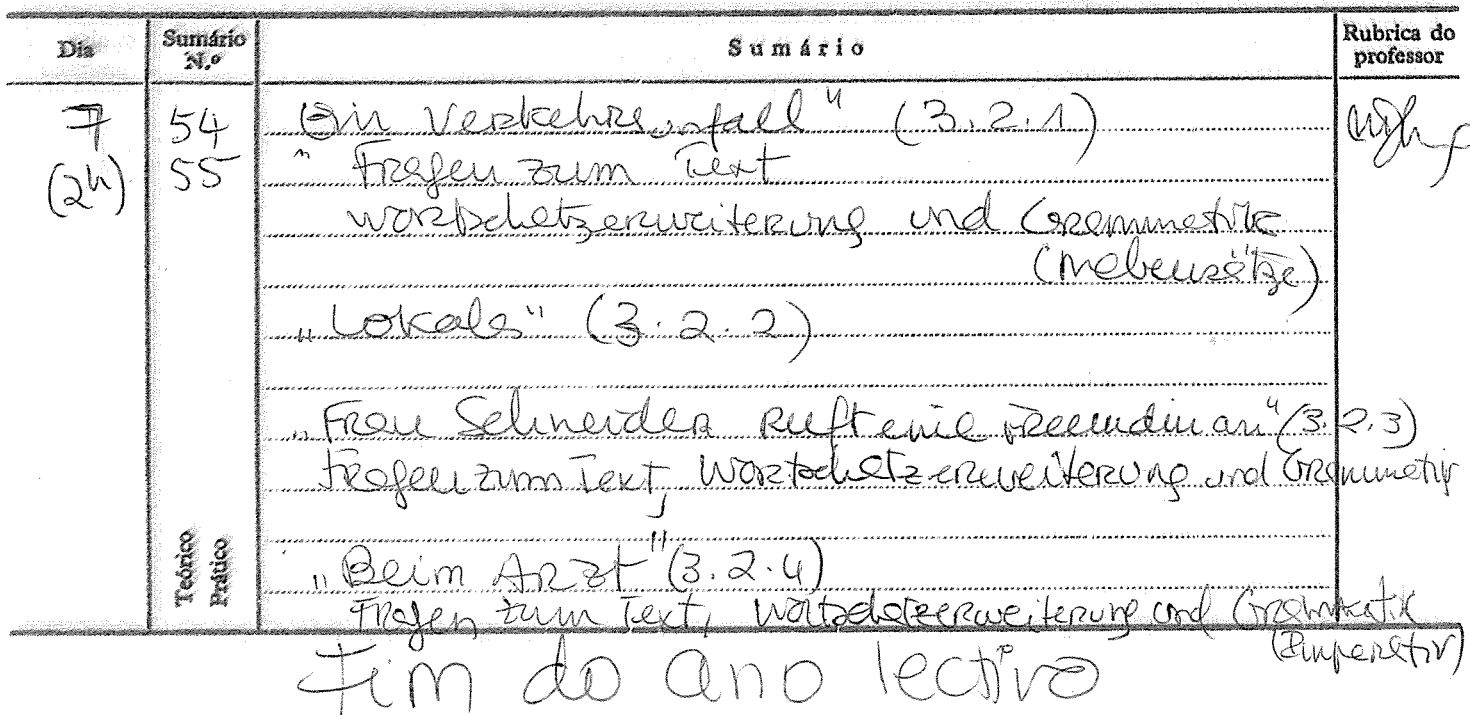 Dia Sumário N.º Sumário Rubrica do professor
7 54 Ein Verkehrsunfall" (3.2.1)
(2h) 55 " Fragen zum Text
Wortschatzerweiterung und Grammatik
(Nebensätze)
„Lokales" (3.2.2)
„Frau Schneider ruft eine Freundin an" (3.2.3)
Fragen zum Text, Wortschatzerweiterung und Grammatik
Teórico
Prático
„Beim Arzt" (3.2.4)
Fragen zum Text, Wortschatzerweiterung und Grammatik
(Imperativ)
Fim do ano lectivo